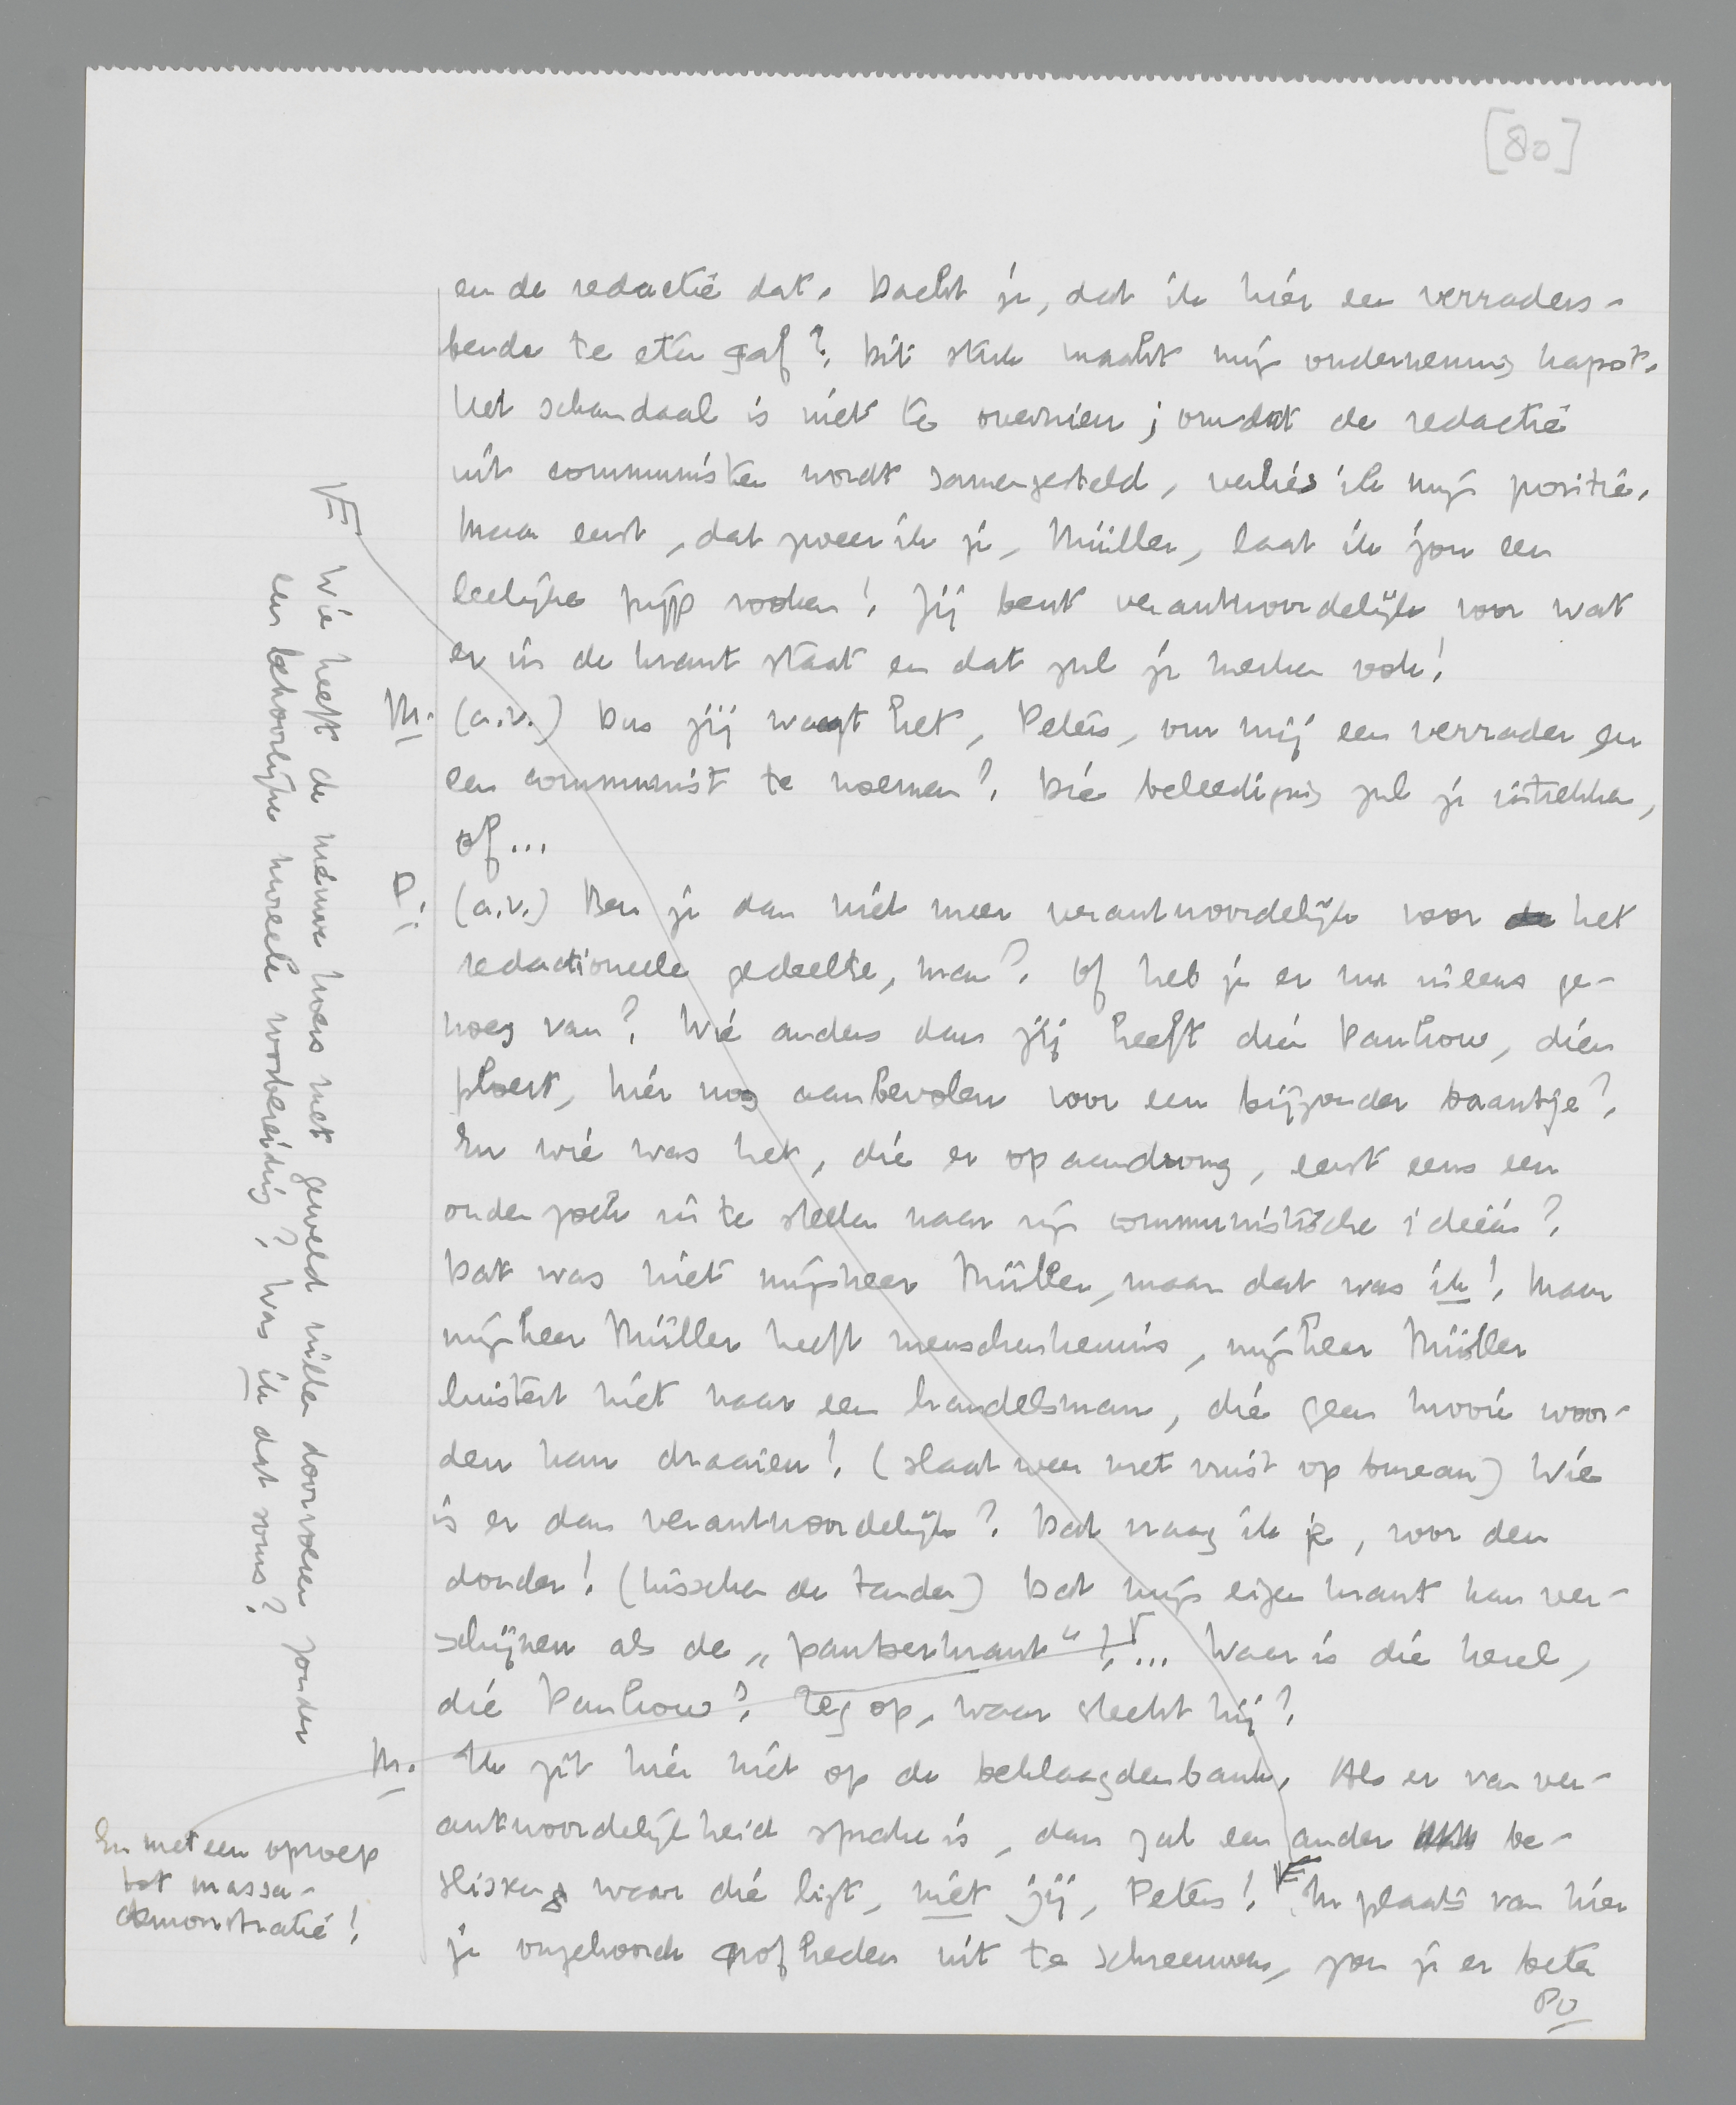 [80]
en de redactie dat. Dacht je, dat ik hier een verraders-
bende te eten gaf? Dit stuk maakt mijn onderneming kapot.
Het schandaal is niet te overzien; omdat de redactie
uit communisten wordt samengesteld, verlies ik mijn positie.
Maar eerst, dat zweer ik je, Müller, laat ik jou een
leelijke pijp rooken! Jij bent verantwoordelijk voor wat
er in de krant staat en dat zul je merken ook!
M. (a.v.) Dus jij waagt het, Peters, om mij een verrader en
een communist te noemen? Die beleediging zul je intrekken,
of...
P. (a.v.) Ben je dan niet meer verantwoordelijk voor het
redactioneele gedeelte, man? Of heb je er nu ineens ge-
noeg van? Wie anders dan jij heeft die Pankow, dien
ploert, hier nog aanbevolen voor een bijzonder baantje?
En wie was het, die er op aandrong, eerst eens een
onderzoek in te stellen naar zijn communistische ideeën?
Dat was niet mijnheer Müller, maar dat was ik! Maar
mijnheer Müller heeft menschenkennis, mijnheer Müller
luistert niet naar een handelsman, die geen mooie woor-
den kan draaien! (slaat weer met vuist op bureau) Wie
is er dan verantwoordelijk? Dat vraag ik je, voor den
donder! (tusschen de tanden) Dat mijn eigen krant kan ver-
schijnen als de „pantserkrant“!... Waar is die kerel,
die Pankow? Zeg op, waar steekt hij?
M. Ik zit hier niet op de beklaagdenbank. Als er van ver-
antwoordelijkheid sprake is, dan zal een ander be-
slissen waar die ligt, niet jij, Peters! In plaats van hier
je ongehoorde grofheden uit te schreeuwen, zou je er beter
PO
Wie heeft de nieuwe koers met geweld willen doorvoeren zonder
een behoorlijke moreele voorbereiding? Was ik dat soms?
En met een oproep
tot massa-
demonstratie!